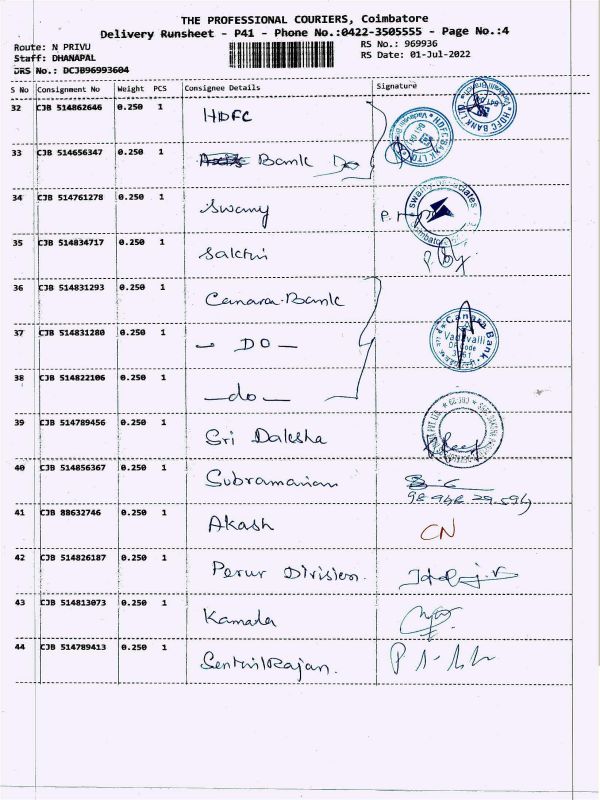 THE PROFESSIONAL COURIERS, Coimbatore
Delivery Runsheet - P41 - Phone No.:0422-3505555 - Page No.:4
Route: N PRIVU
RS No.: 969936
Staff: DHANAPAL
RS Date: 01-Jul-2022
DRS No.: DCJB96993604
S No Consignment No Weight PCS Consignee Details Signature
32 CJB 514862646 0.250 1 HDFC
HDFC BANK LTD
33 CJB 514656347 0.250 1 Bank Do
HDFC BANK LTD
34 CJB 514761278 0.250 1 Swamy
35 CJB 514834717 0.250 1 Sakthi
36 CJB 514831293 0.250 1 Canara Bank
37 CJB 514831280 0.250 1 - DO -
Canara Bank
Vadavalli
DP Code
38 CJB 514822106 0.250 1 - do -
39 CJB 514789456 0.250 1 Sri Daksha
40 CJB 514856367 0.250 1 Subramanian
41 CJB 88632746 0.250 1 Akash CN
42 CJB 514826187 0.250 1 Perur Division.
43 CJB 514813073 0.250 1 Kamala
44 CJB 514789413 0.250 1 SenthilRajan.